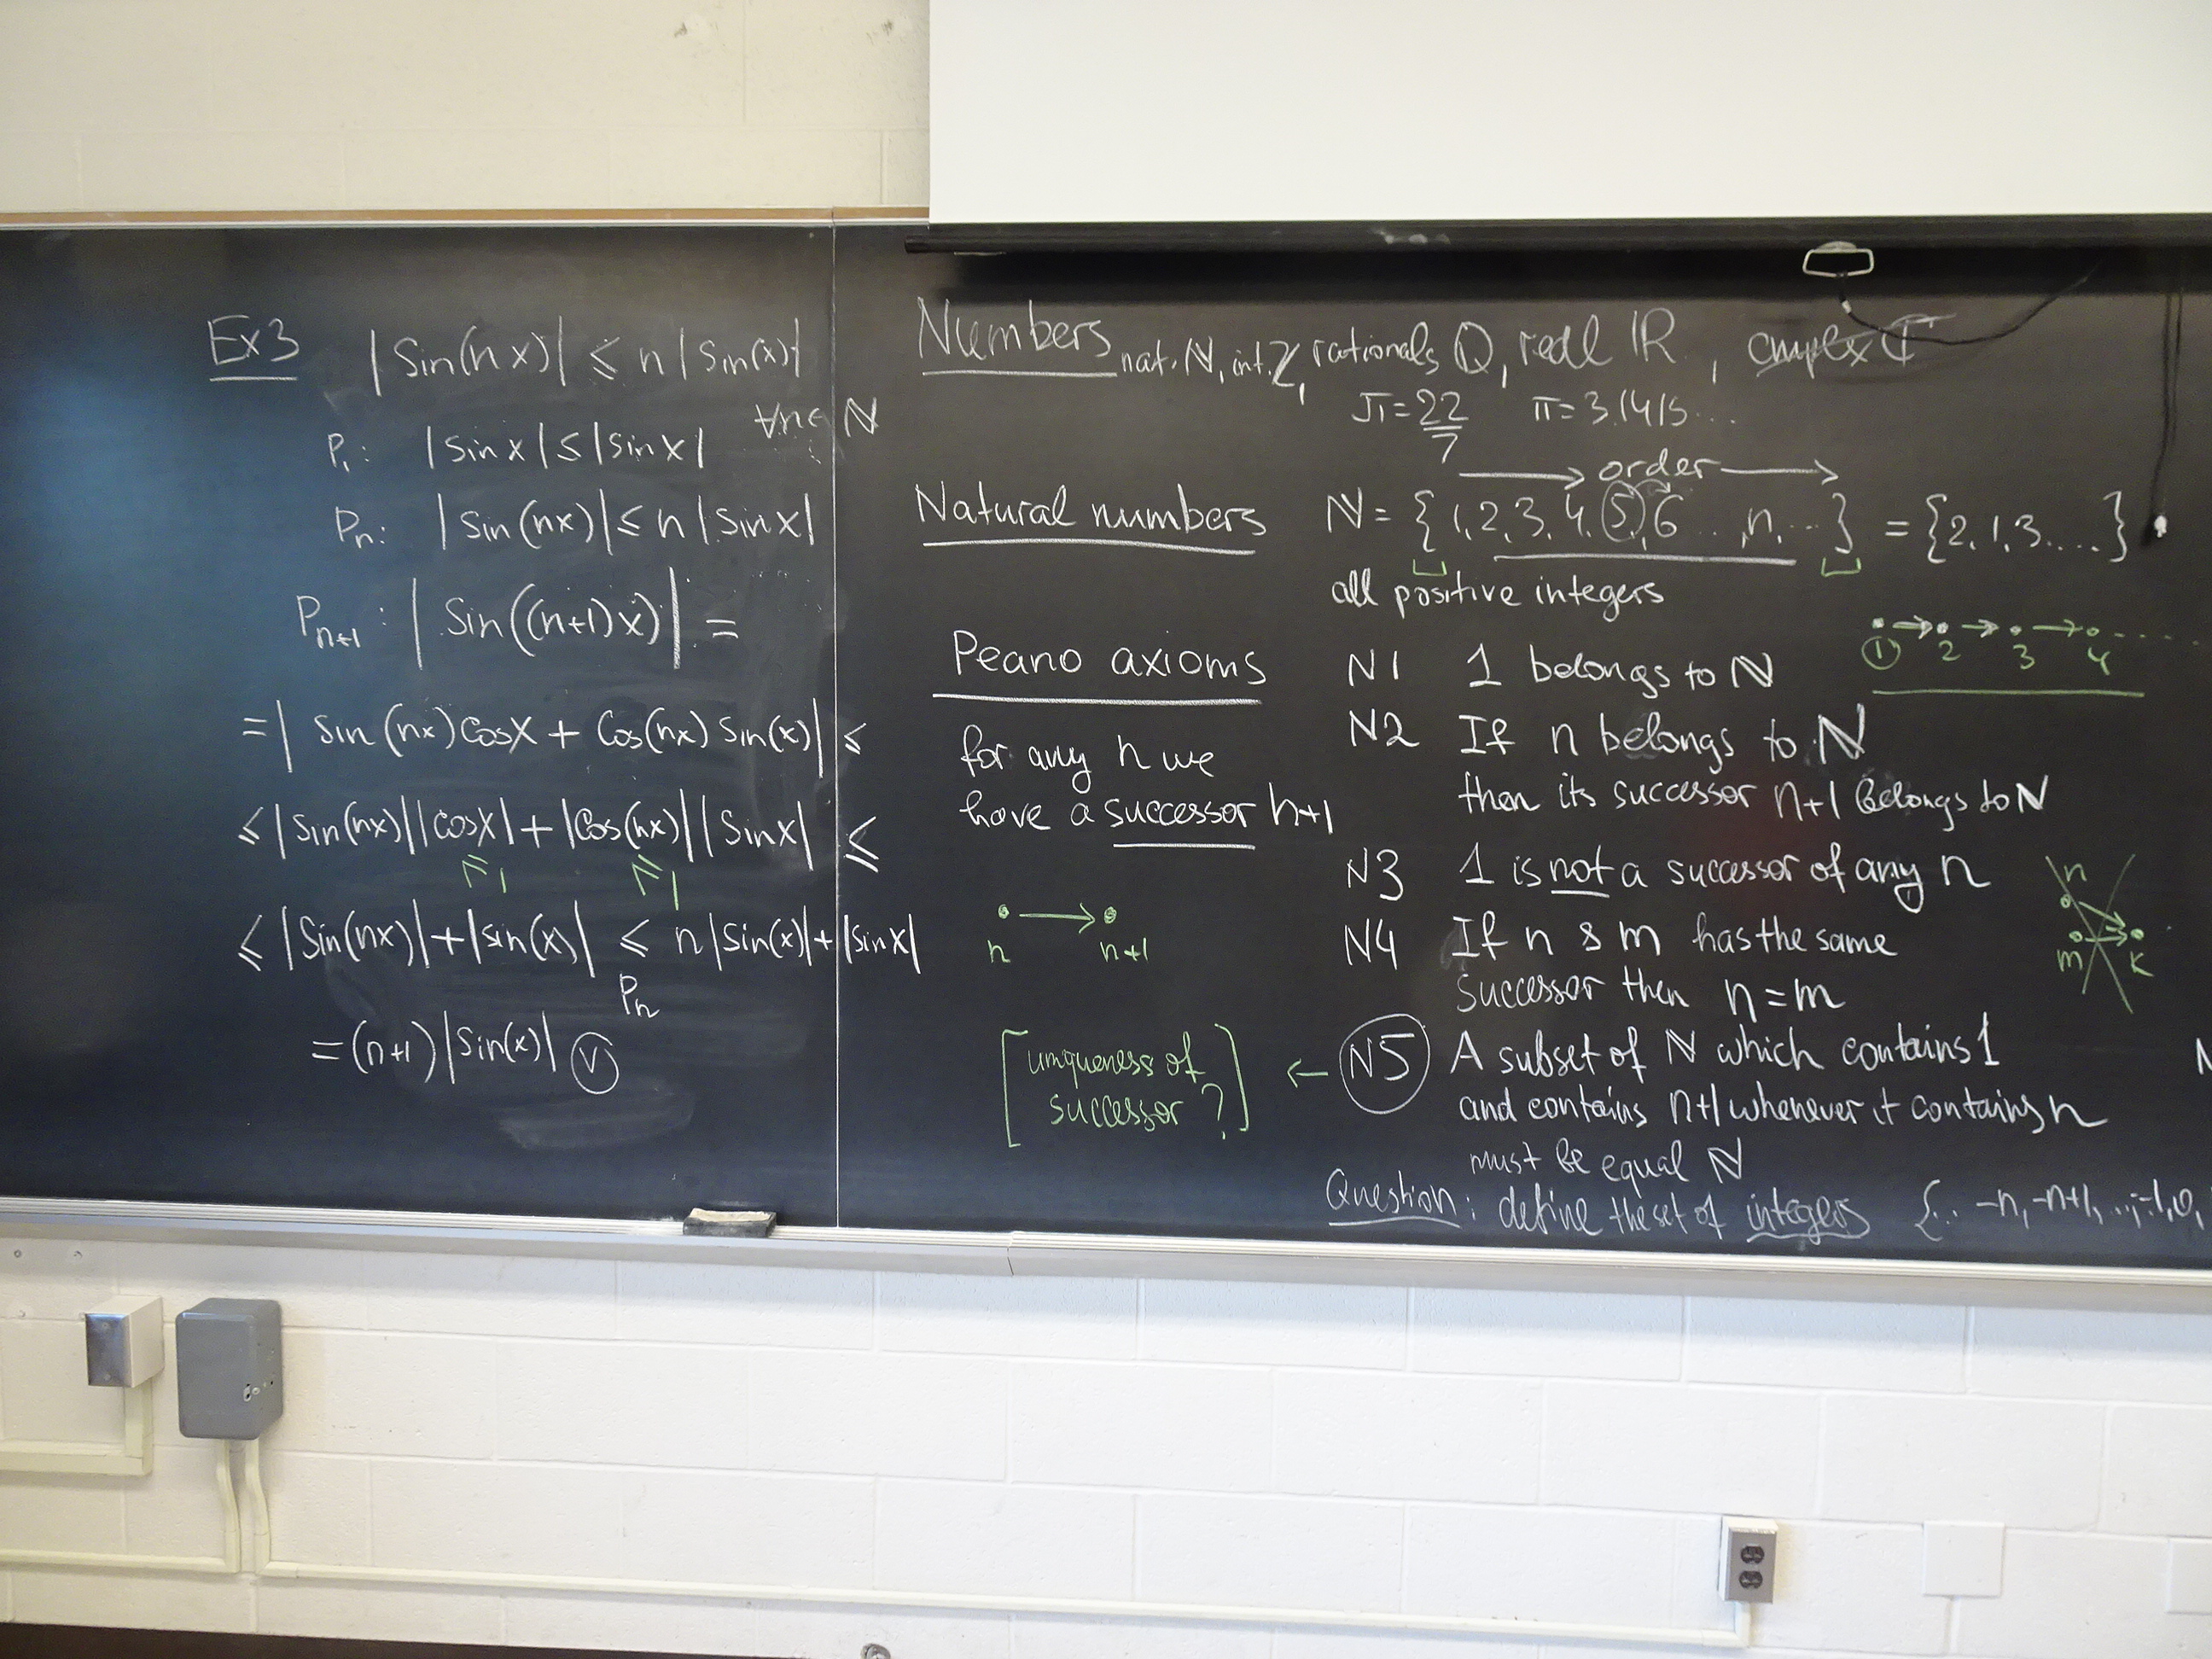 Ex3 |Sin(nx)| ≤ n|Sin(x)|
∀n∈ℕ
P₁: |Sin x| ≤ |sin x|
Pₙ: |Sin(nx)| ≤ n|Sin x|
Pₙ₊₁: |Sin((n+1)x)| =
= |Sin(nx)Cosx + Cos(nx)Sin(x)| ≤
≤ |Sin(nx)||Cosx| + |Cos(nx)||Sinx| ≤
≤1 ≤1
≤ |Sin(nx)| + |sin(x)| ≤ n|Sin(x)| + |Sinx|
Pₙ
= (n+1)|Sin(x)| V
Numbers nat. ℕ, int. ℤ, rationals ℚ, real ℝ, complex ℂ
π = 22/7 π = 3.1415...
→ order →
Natural numbers ℕ = {1,2,3,4,5,6...,n,...} = {2,1,3....}
all positive integers
1 → 2 → 3 → 4 ....
Peano axioms
for any n we
have a successor n+1
n → n+1
N1 1 belongs to ℕ
N2 If n belongs to ℕ
then its successor n+1 belongs to ℕ
N3 1 is not a successor of any n
N4 If n & m has the same
successor then n = m
n
m k
[uniqueness of
successor ?]
← N5 A subset of ℕ which contains 1
and contains n+1 whenever it contains n
must be equal ℕ
Question: define the set of integers {... -n, -n+1, ..., -1, 0,